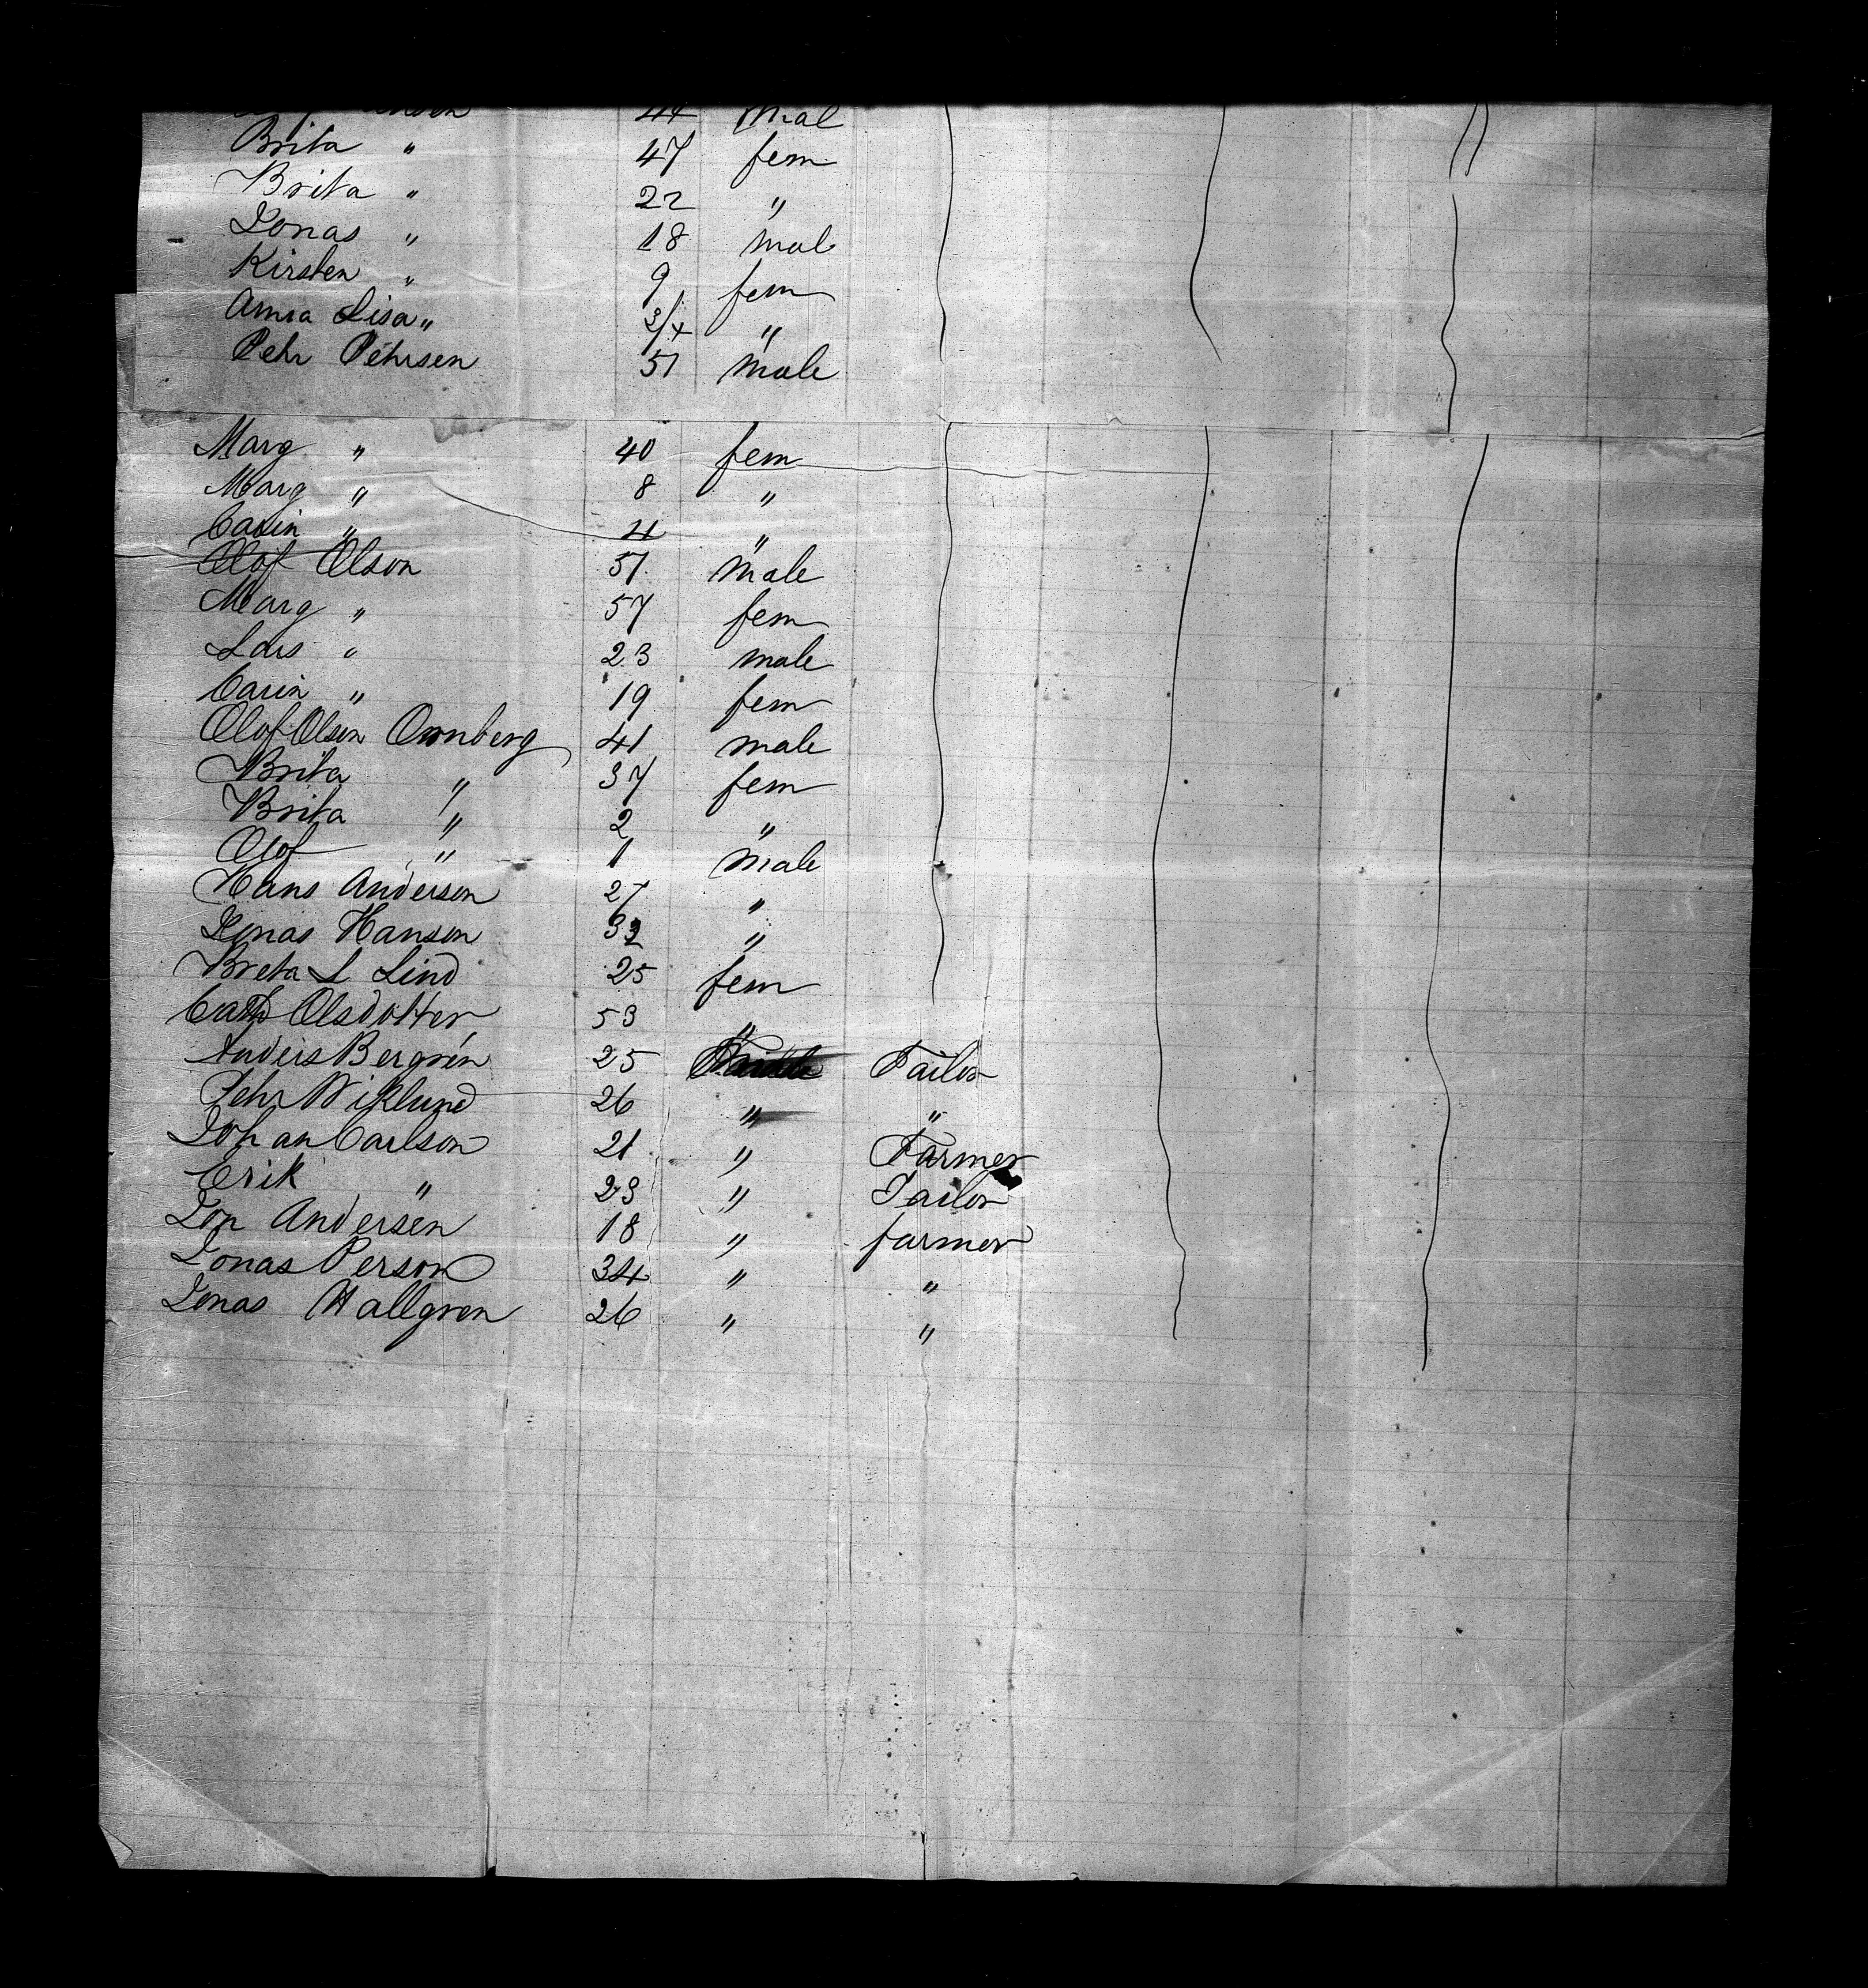 44 Mal
Brita " 47 fem
Brita " 22 "
Jonas " 18 mal
Kirsten " 9 fem
Anna Lisa " 3/4 "
Pehr Pehrsen 51 male
Marg " 40 fem
Marg " 8 "
Carin " 4 "
Olof Olson 51 male
Marg " 57 fem
Lars " 23 male
Carin " 19 fem
Olof Olsen Ornberg 41 male
Brita " 37 fem
Brita " 2 "
Olof " 1 male
Hans Anderson 27 "
Jonas Hanson 32 "
Breta L Lind 25 fem
Cath Olsdotter 53 "
Anders Bergrén 25 Tailor
Pehr Wiklund 26 " "
Johan Carlson 21 " Farmer
Erik " 23 " Tailor
Jon Andersen 18 " farmer
Jonas Person 34 " "
Jonas Hallgren 26 " "